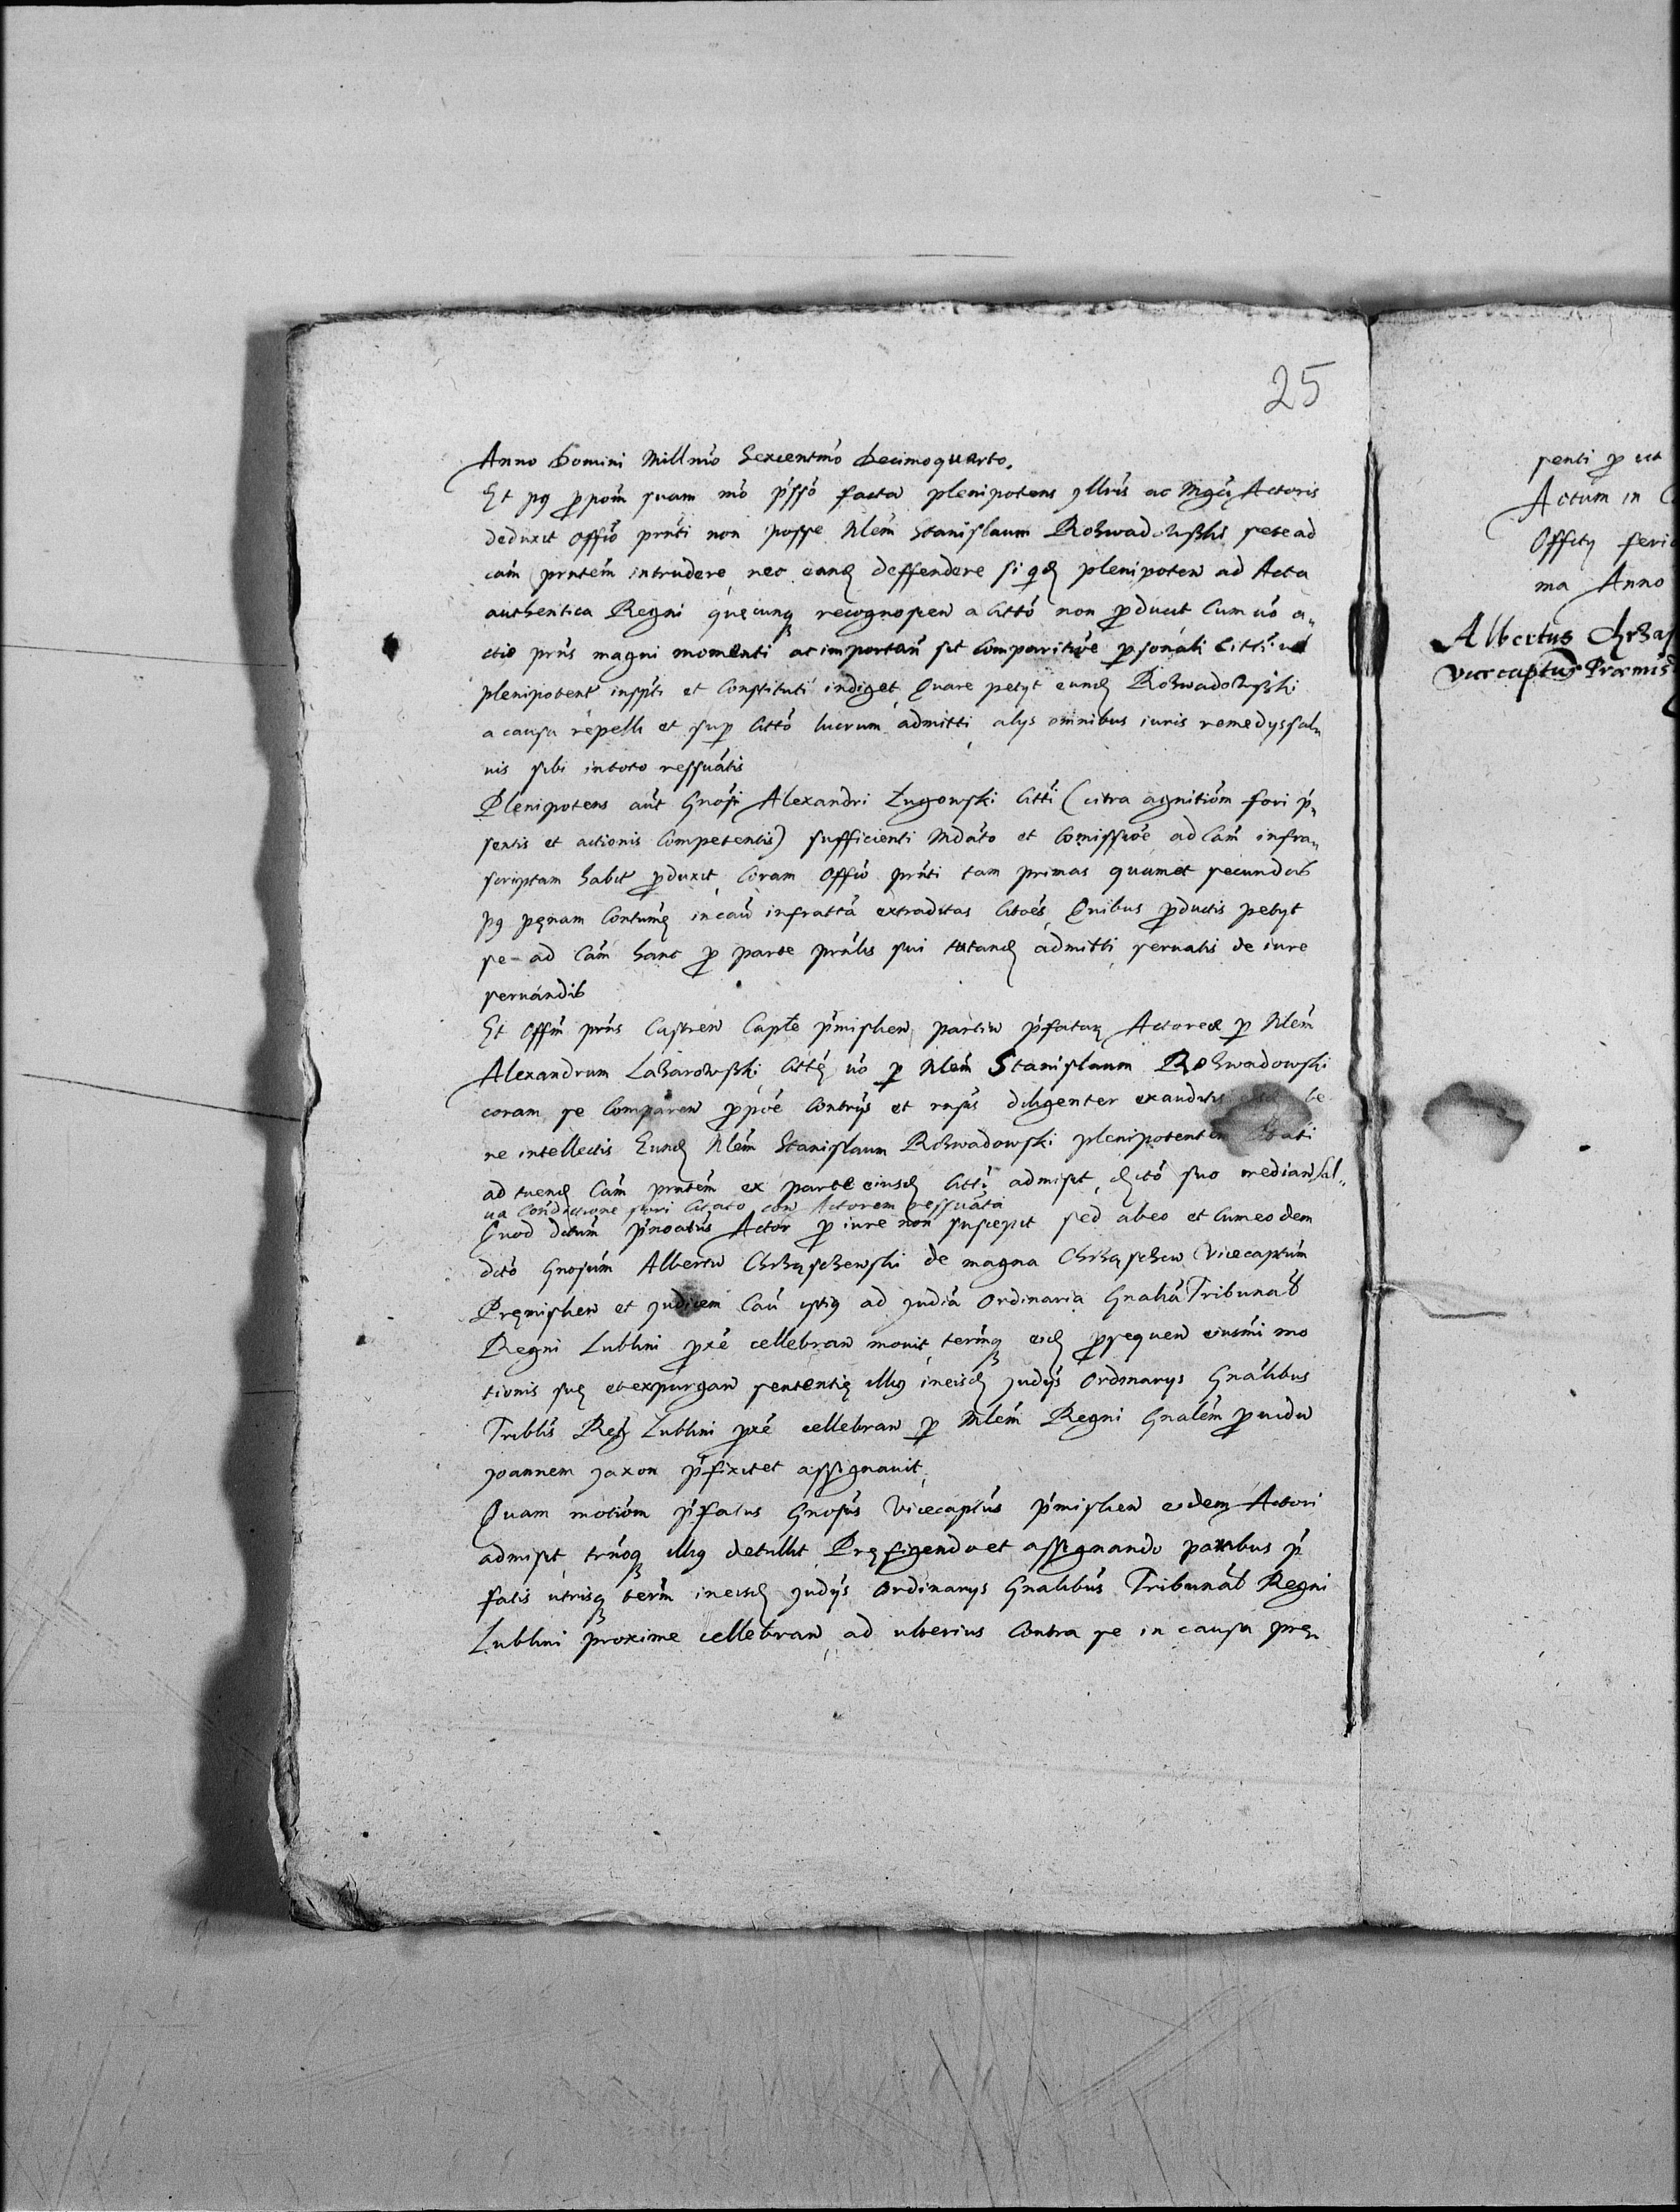 25
Anno Domini Millmo Sexcentmo Decimoquarto.
Et p9 ppoem suam mo pssso facta plenipotens Jllris ac Mgci Actoris
deduxit offio prnti non posse Nlem Stanislaum Rozwadowski sese ad
cam prntem intrudere nec eand deffendere si qd plenipoten ad Acta
authentica Regni quecunq recognoscen a Citto non pducit Cum vo a„
ctio prns magni momenti ac importan sit Comparitioe psonali Citti vel
plenipotent inspti et Constituti indiget, Quare petyt eund Rozwadowski
a causa repelli et sup Citto lucrum admitti, alys omnibus iuris remedys sal„
vis sibi in toto ressuatis
Plenipotens aut Gnosi Alexandri Zugowski Citti (citra agnitiom fori p„
sentis et actionis Competentis) sufficienti Mdato et Comissioe ad Cam infra„
scriptam habit pduxit, Coram Offio prnti tam primas quam et secundas
p9 penam Contume in cau infratta extraditas Citoes, Quibus pductis petyt
se ad Cam hanc p parte prnlis sui tutand admitti, seruatis de iure
seruandis
Et Offm prns Castren Capte pmislien partiu pfataru Actorea p Nlem
Alexandrum Lazarowski, Citte vo p Nlem Stanislaum Rozwadowski
coram se Comparen ppoe Contrys et rnsis diligenter exauditis be
ne intellectis Eund Nlem Stanislaum Rozwadowski plenipotentem Citati
ad tuend Cam prntem ex parte eiusd Citti admisit, dcto suo median sal„
va Condictione iuri Citato con Actorem ressuata
Quod dctum pnoatus Actor p iure non suscepit sed ab eo et Cum eodem
dcto Gnosum Albertu Chrząszczewski de magna Chrząszczew Vicecaptum
Premislien et Judicem Cau istig ad Judia Ordinaria Gnalia Tribunal
Regni Lublini pxe cellebran mouit, termq eid psequen eiusmi mo
tionis sue et expurgan sententie illi9 in eisd Judys Ordinarys Gnalibus
Triblis Regni Lublini pxe cellebran p Mlem Regni Gnalem puidu
Joannem Jaxon pfixit et assignauit,
Quam motiom pfatus Gnosus Vicecaptus pmislien eidem Actori
admisit, trnoq illi9 detullit Prefigendo et assignando partibus p
fatis utrisq term in eisd Judys Ordinarys Gnalibus Tribunal Regni
Lublini proxime cellebran, ad ulterius Contra se in causa pre„
senti p ut
Actum in
Offity feri
ma Anno
Albertus Chrzaſ
Vicecaptus Præmis